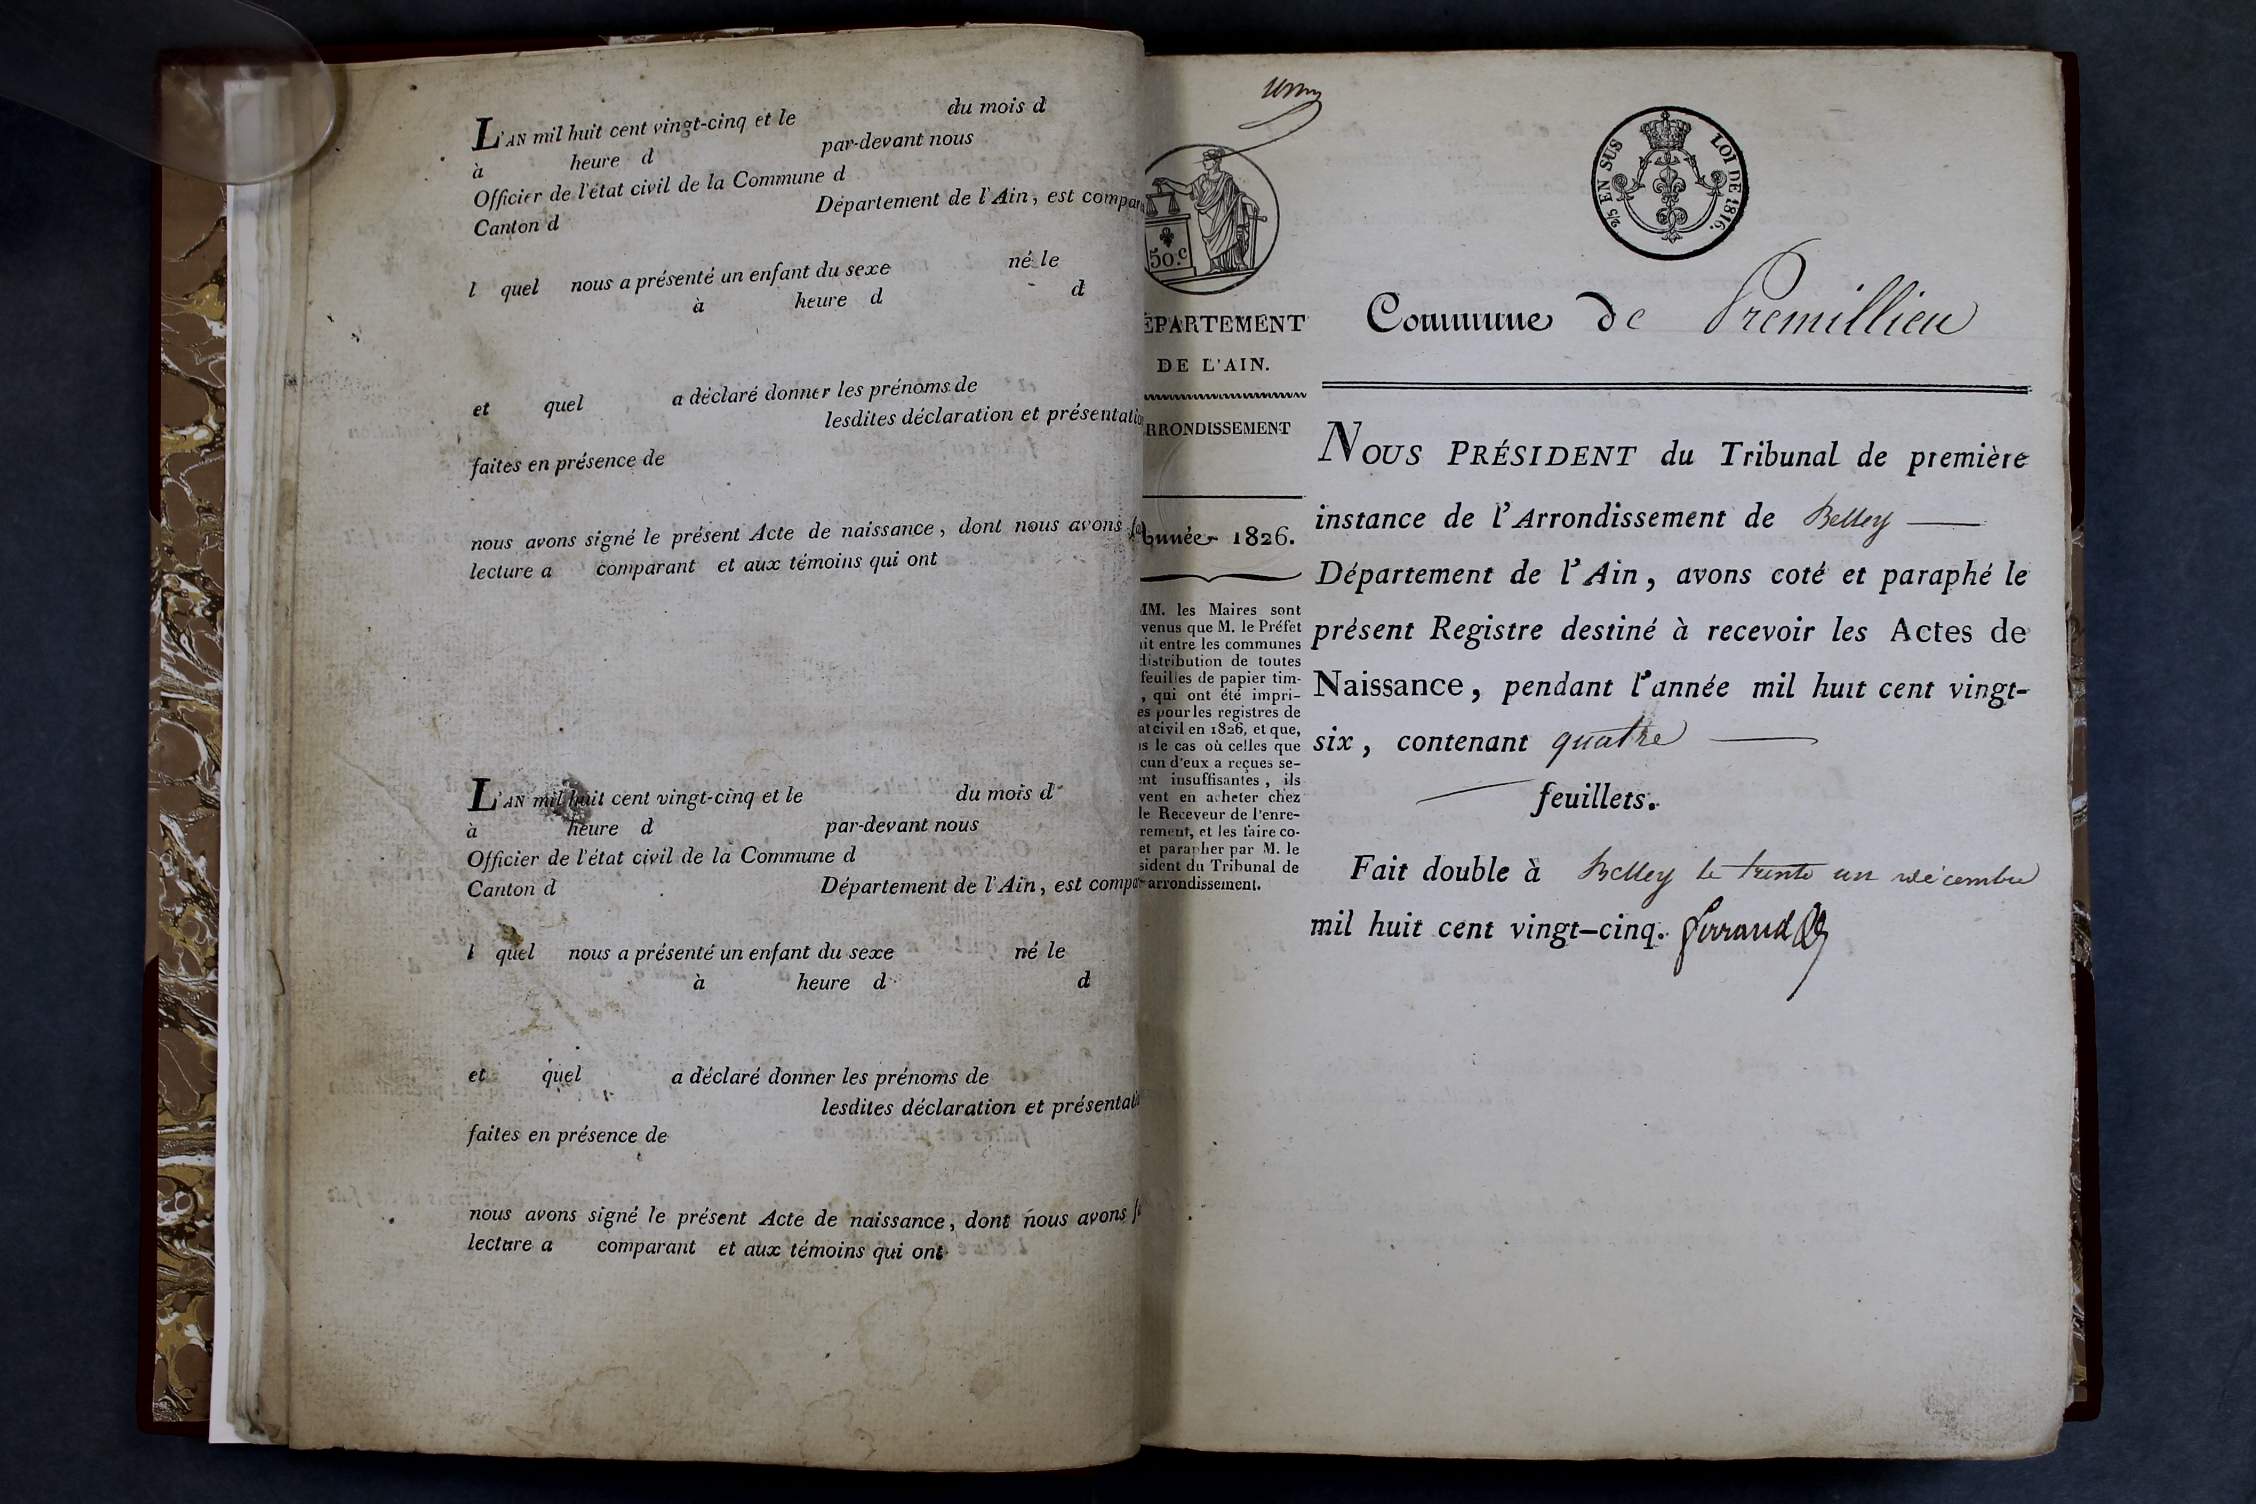 L'AN mil huit cent vingt-cinq et le du mois d
à heure d par-devant nous
Officier de l'état civil de la Commune d
Canton d Département de l'Ain, est compara
l quel nous a présenté un enfant du sexe né le
à heure d d
et quel a déclaré donner les prénoms de
lesdites déclaration et présentatio
faites en présence de
nous avons signé le présent Acte de naissance, dont nous avons fa
lecture a comparant et aux témoins qui ont
L'AN mil huit cent vingt-cinq et le du mois d
à heure d par-devant nous
Officier de l'état civil de la Commune d
Canton d Département de l'Ain, est compa
l quel nous a présenté un enfant du sexe né le
à heure d d
et quel a déclaré donner les prénoms de
lesdites déclaration et présentati
faites en présence de
nous avons signé le présent Acte de naissance, dont nous avons f
lecture a comparant et aux témoins qui ont
50.c
2/5 EN SUS LOI DE 1816.
ÉPARTEMENT
DE L'AIN.
RRONDISSEMENT
Année 1826.
MM. les Maires sont
venus que M. le Préfet
it entre les communes
distribution de toutes
feuilles de papier tim-
, qui ont été impri-
es pour les registres de
at civil en 1826, et que,
s le cas où celles que
cun d'eux a reçues se-
nt insuffisantes, ils
vent en acheter chez
le Receveur de l'enre-
rement, et les faire co-
et parapher par M. le
sident du Tribunal de
arrondissement.
Commune de Premillieu
NOUS PRÉSIDENT du Tribunal de première
instance de l'Arrondissement de Belley
Département de l'Ain, avons coté et paraphé le
présent Registre destiné à recevoir les Actes de
Naissance, pendant l'année mil huit cent vingt-
six, contenant quatre
feuillets.
Fait double à Belley le trente un décembre
mil huit cent vingt-cinq. Ferraud